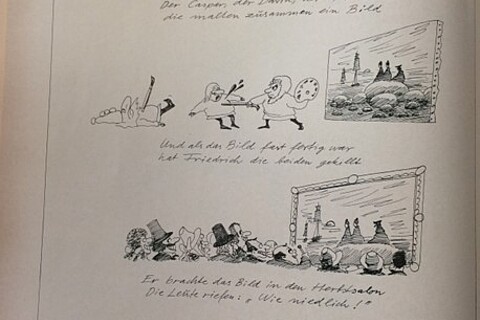 Der Casper, der David,
die malten zusammen ein Bild
Und als das Bild fast fertig war
hat Friedrich die beiden gekillt
Er brachte das Bild in den Herbstsalon
Die Leute riefen: „Wie niedlich!"